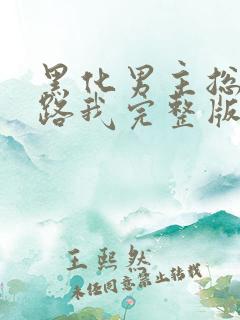 黑化男主总
路我完整版
王熙然
未经同意禁止转载